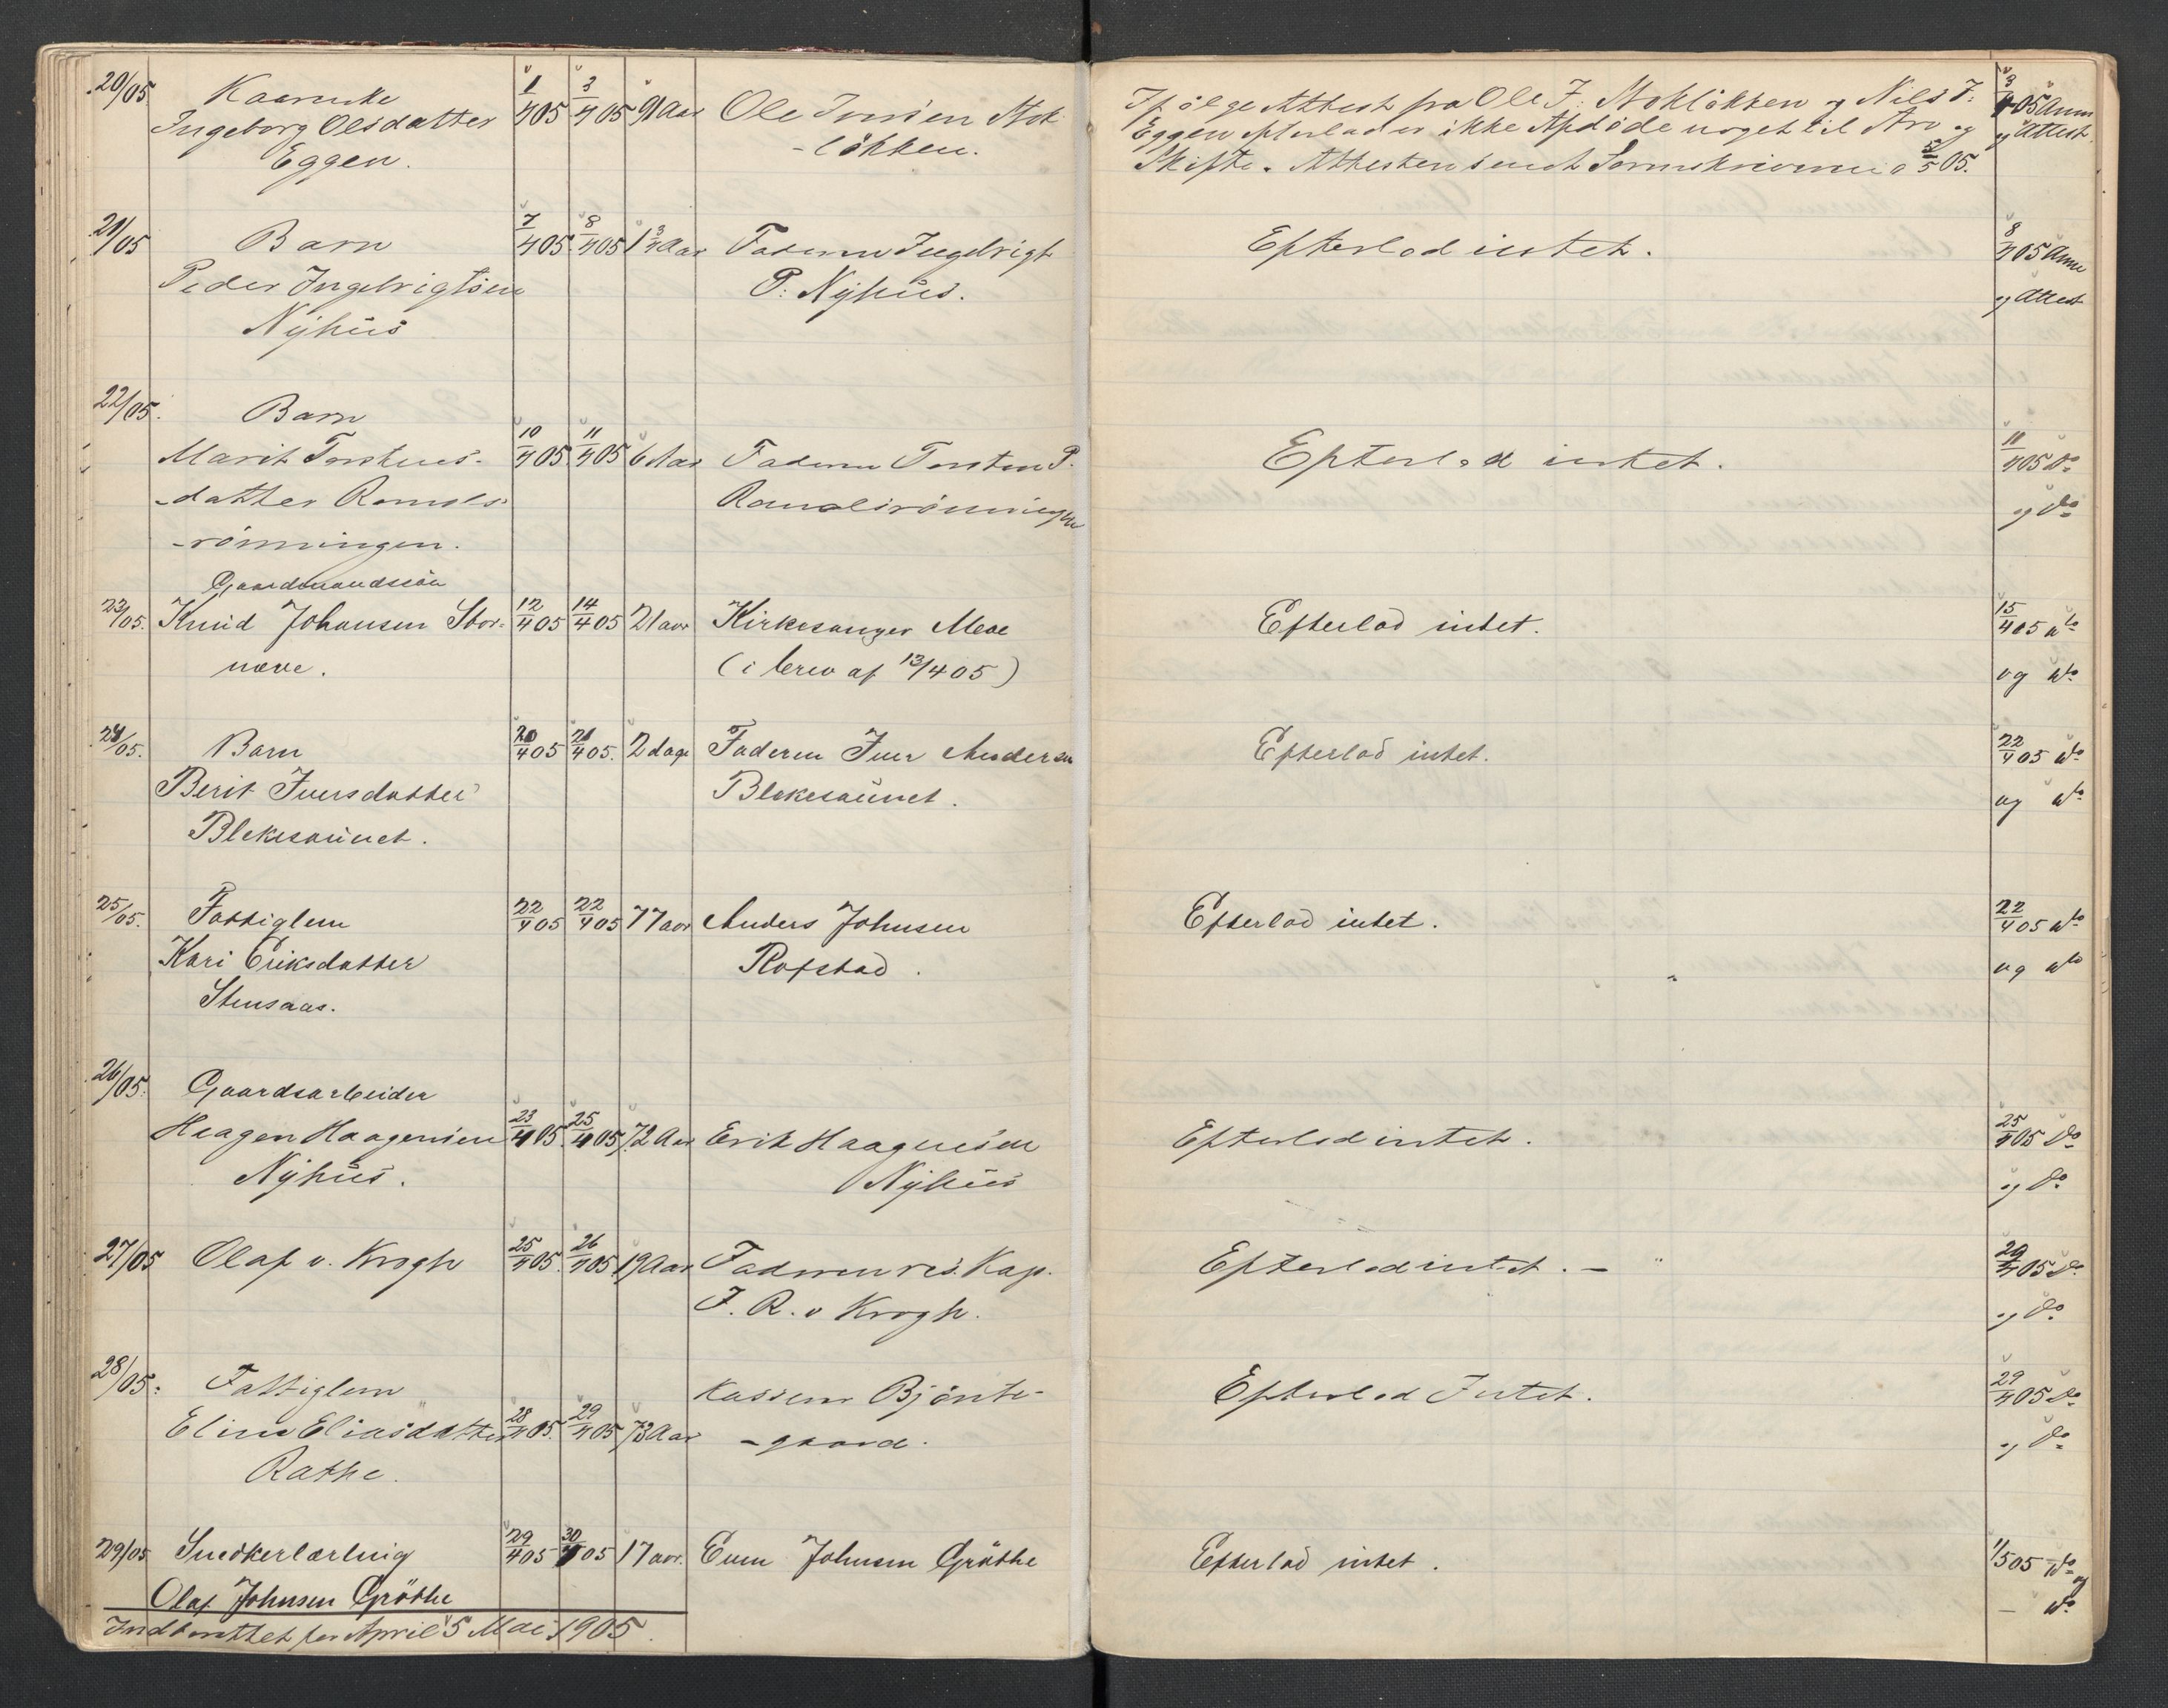 20/05 Kaarenke 1/4 05 3/4 05 91 Aar Ole Jonsen Mok
Ingeborg Olsdatter -løkken.
Eggen.
Ifølge Attest fra Ole J: Mokløkken og Nils J: 3/4 05 Anm
Eggen efterlader ikke Afdøde noget til Arv og og Attest
Skifte. Attesten sendt Sorenskriveren 5/5 05.
21/05 Barn 7/4 05. 8/4 05 1 3/4 Aar Faderen Ingebrigt Efterlod intet. 8/4 05 Anm
Peder Ingebrigtsen P. Nyhus. og Attest
Nyhus
22/05. Barn
Marit Torstens- 10/4 05. 11/4 05 6 Aar Faderen Torsten P. Efterlod intet. 11/4 05 do
-datter Ramls- Ramlsrønningen og do
-rønningen.
Gaardmandssøn
23/05. Knud Johansen Stor- 12/4 05 14/4 05 21 aar Kirkesanger Moe Efterlod intet. 15/4 05 do
næve. (i brev af 13/4 05) og do
24/05. Barn 20/4 05 21/4 05. 2 dage Faderen Iver Andersen Efterlod intet. 22/4 05 do
Berit Iversdatter Blekesaunet. og do
Blekesaunet.
25/05. Fattiglem 22/4 05 22/4 05 77 aar Anders Johnsen Efterlod intet. 22/4 05 do
Kari Eriksdatter Rofstad. og do
Stensaas.
26/05. Gaardsarbeider
Haagen Haagensen 23/4 05. 25/4 05 72 Aar Erik Haagensen Efterlod intet. 25/4 05 do
Nyhus. Nyhus og do
27/05 Olaf v. Krogh 25/4 05. 26/4 05 19 Aar Faderen res. Kap. Efterlod intet. — 29/4 05 do
F. R. v Krogh. og do
28/05. Fattiglem Kasserer Bjönte- Efterlod Intet. 29/4 05 do
Elina Eliasdatter 28/4 05. 29/4 05 73 Aar -gaard. og do
Rathe.
29/05 Snedkerlærling 29/4 05 30/4 05 17 aar. Even Johnsen Grøthe Efterlod intet. 1/5 05 do og
Olaf Johnsen Grøthe — do
Indberettet for April 5 Mai 1905.